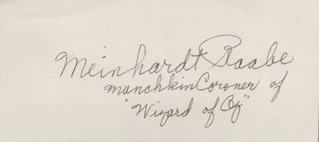 Meinhardt Raabe
Munchkin Coroner of
"Wizard of Oz"